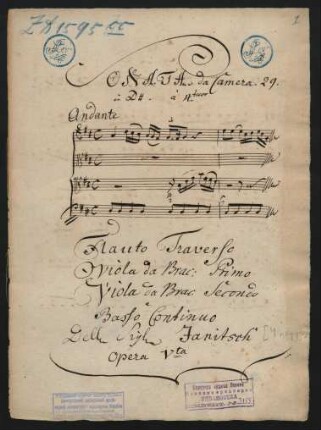 ZD 1595
1
SONATA da Camera. 29.
à D# à 4tuor
Andante
Flauto Traverso
Viola da Brac: Primo
Viola da Brac Secondo
e
Basso Continuo
Dell Sigl Janitsch
Opera Vta